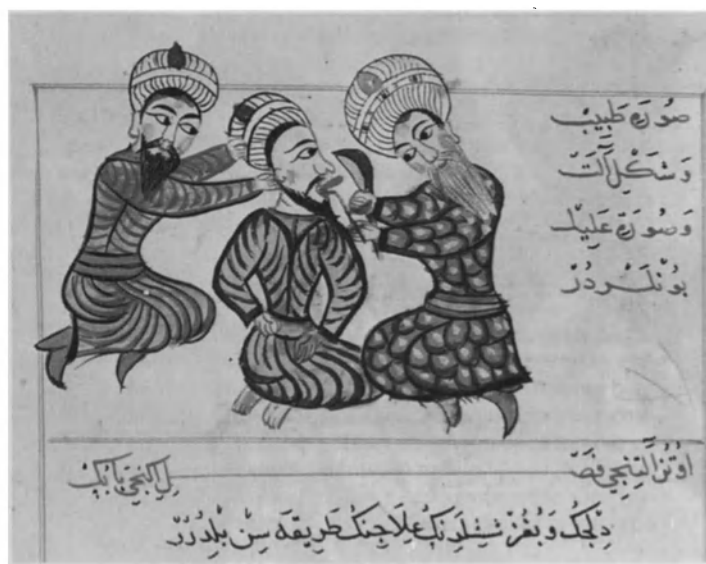 صُورَةِ طَبِيبْ
وَشَكْلِ آلَتْ
وَصُورَةِ عَلِيلْ
بُونْلَرْدُرْ
اوُتُزْ اَلْتِنْجِي فَصْلِ اِكِنْجِي بَابُكْ
دِلْجِكْ وَبُغُزْ شِشْلَرِنُكْ عِلَاجِنُكْ طَرِيقَه سِنْ بِلْدُرُرْ